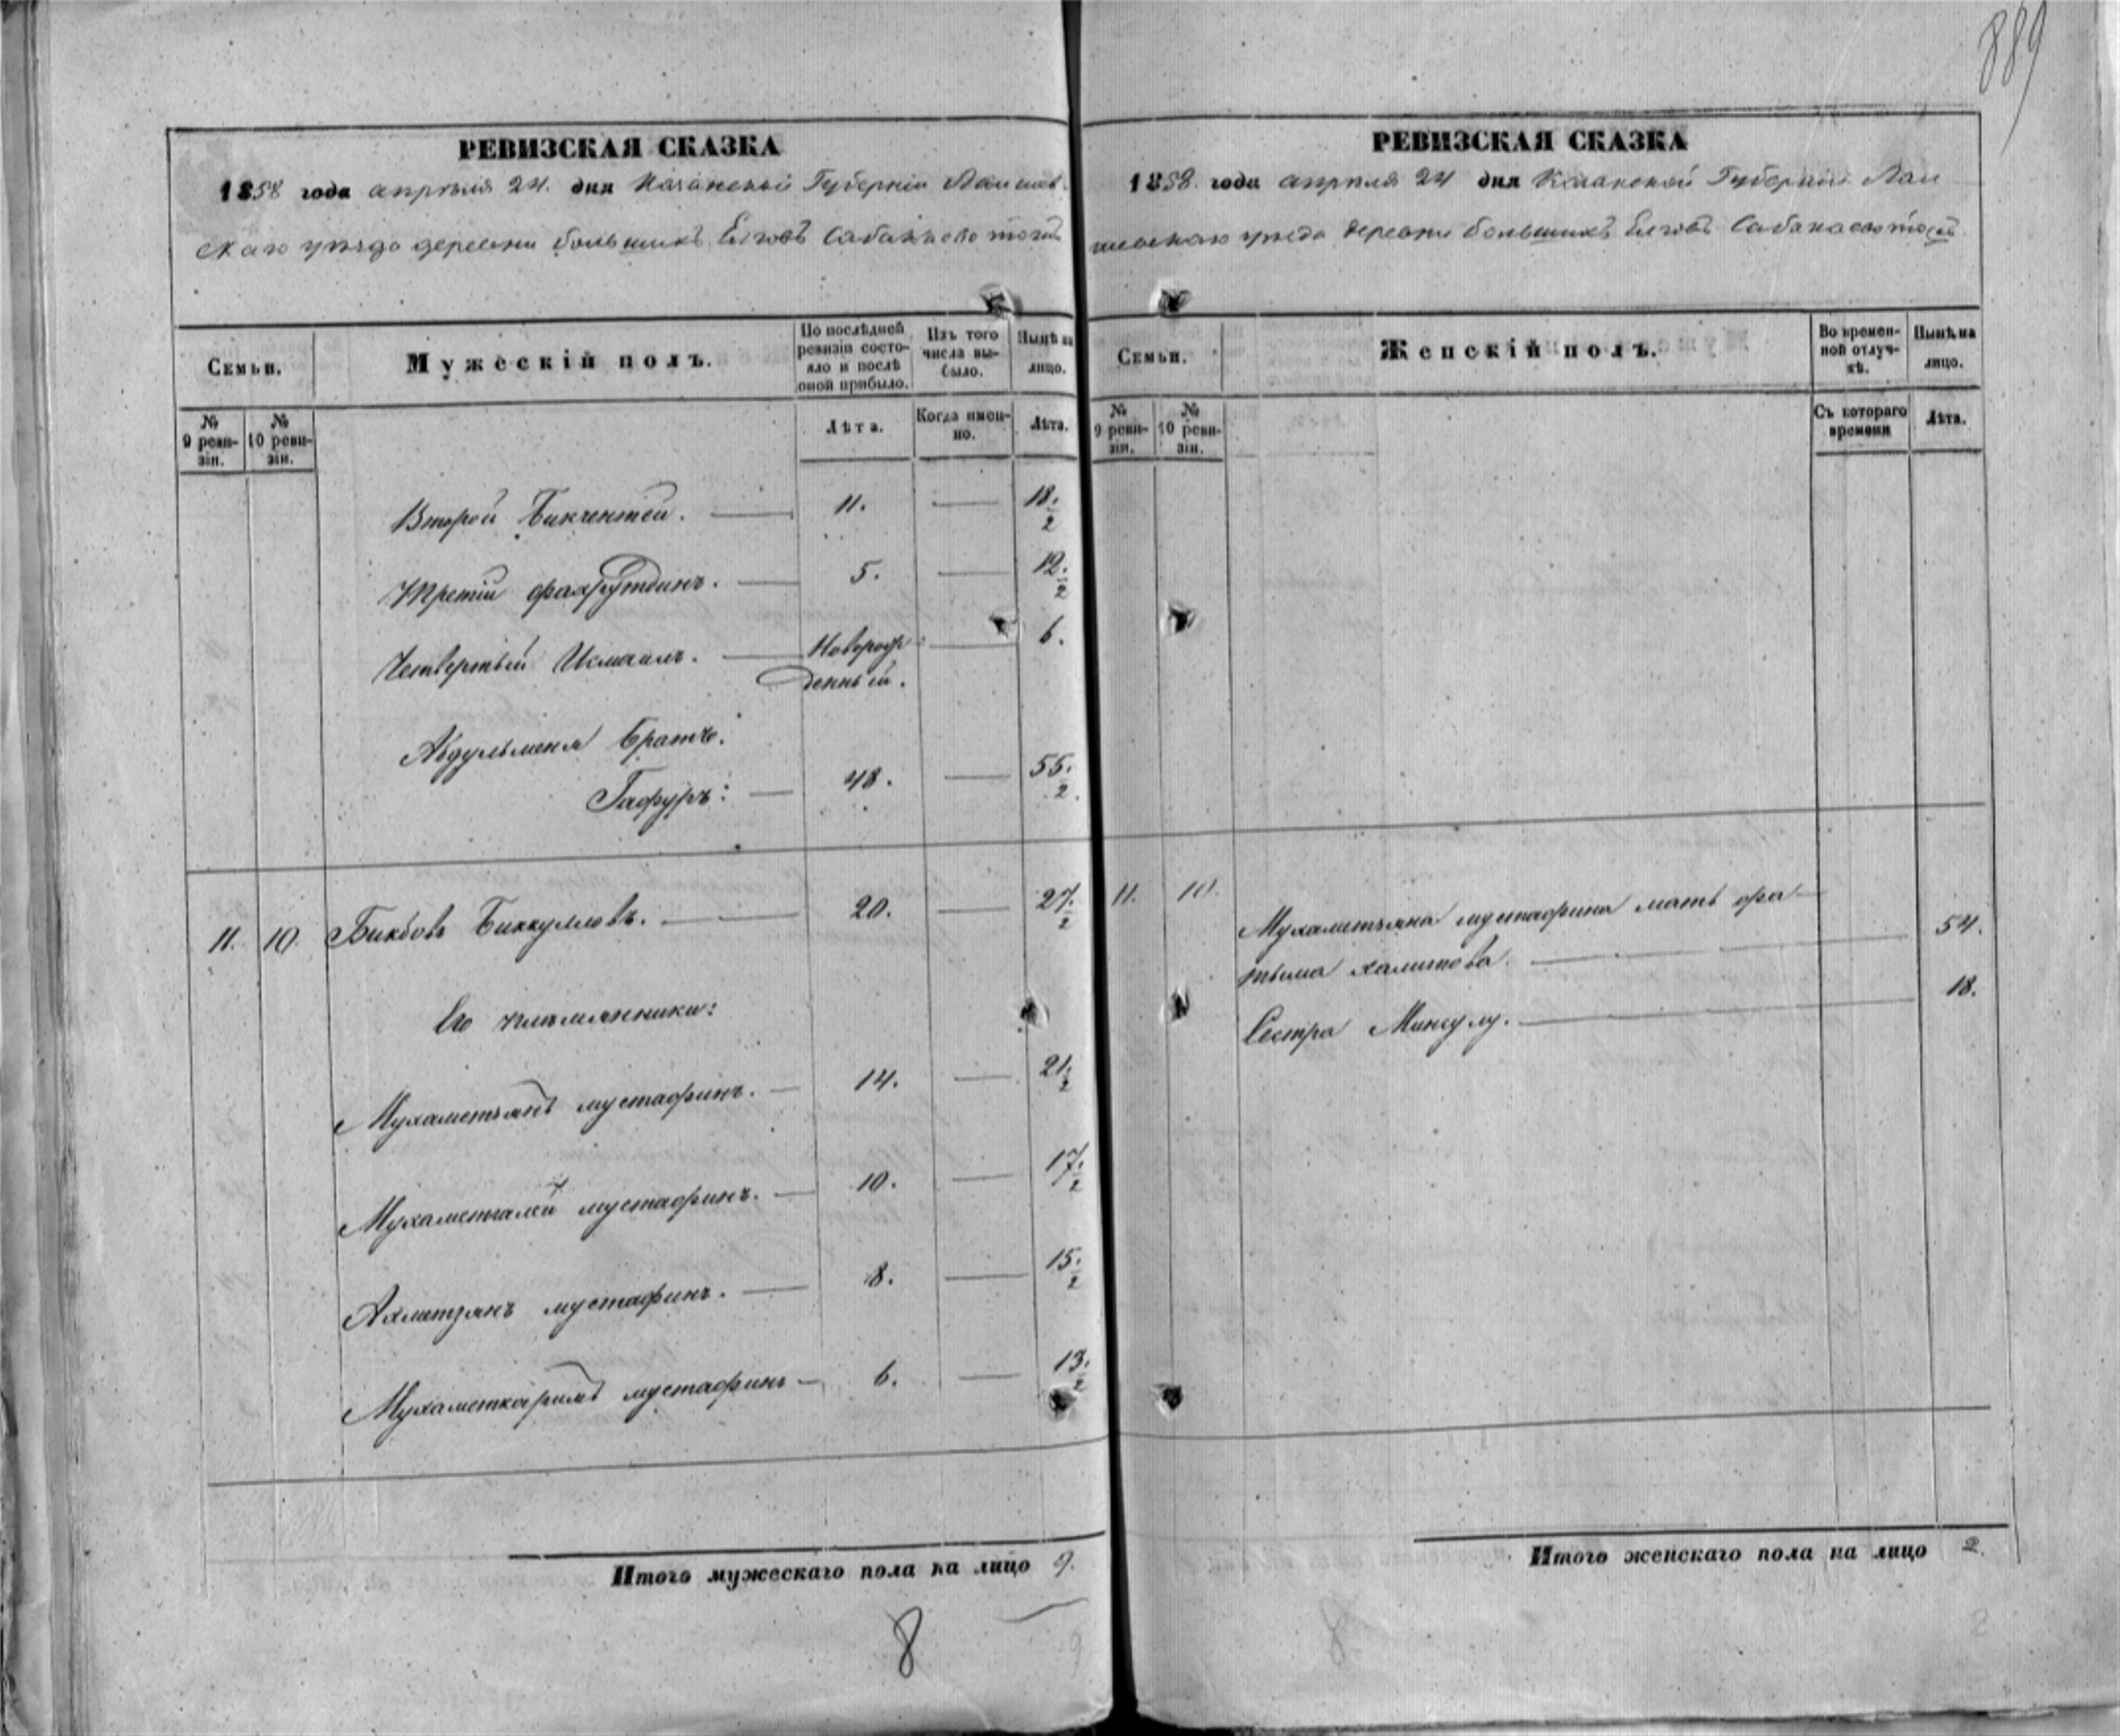 889
РЕВИЗСКАЯ СКАЗКА
1858 года апрѣля 24. дня Казанской Губерніи Лаишев-
скаго уѣзда деревни большихъ Елговъ Сабанаево тожъ
Семьи.
Мужескій полъ.
По послѣдней ревизіи состояло и послѣ оной прибыло.
Изъ того числа выбыло.
Нынѣ на лицо.
№ 9 реви-зіи.
№ 10 реви-зіи.
Лѣта.
Когда имен-но.
Лѣта.
Второй Бикчентей. — 11. — 18. 2
Третій фахрутдинъ. — 5. — 12. 2
Четвертый Исмаилъ. — Новорож- — 6.
денный.
Абдульменя братъ:
Гафуръ: — 48. — 55. 2.
11. 10. Бикбовъ Биккуловъ. — 20. — 27. 2
Его племянники:
Мухаметзянъ мустафинъ. — 14. — 21. 2
Мухаметгалей мустафинъ. — 10. — 17. 2
Ахметзянъ мустафинъ. — 8. — 15. 2
Мухаметкаримъ мустафинъ — 6. — 13. 2
Итого мужескаго пола на лицо 9.
8
РЕВИЗСКАЯ СКАЗКА
1858. года апрѣля 24 дня Казанской Губерніи Лаи
шевскаго уѣзда деревни большихъ Елговъ Сабанаево тожъ
Семьи.
Женскій полъ.
Во времен-ной отлуч-кѣ.
Нынѣ на лицо.
№ 9 реви-зіи.
№ 10 реви-зіи.
Съ котораго времени
Лѣта.
11. 10. Мухаметзяна мустафина мать фа-
тыма халитова. — 54.
Сестра Мингулу. — 18.
Итого женскаго пола на лицо 2.